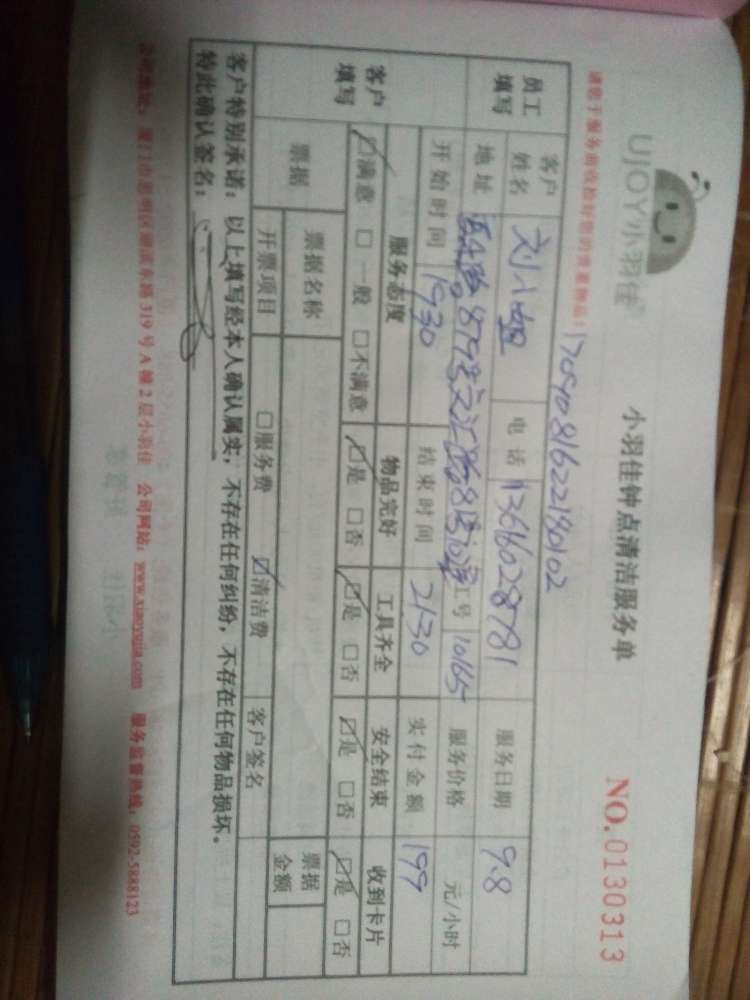 UJOY小羽佳
小羽佳钟点清洁服务单
NO.0130313
请您于服务前收捡好您的贵重物品!
1709081622180102
员工填写
客户姓名 刘小姐 电话 13616028781 服务日期 9.8
地址 879号 815 工号 10165 服务价格 元/小时
开始时间 1930 结束时间 2130 实付金额 199
客户填写
服务态度 物品完好 工具齐全 安全结束 收到卡片
☑满意 □一般 □不满意 ☑是 □否 ☑是 □否 ☑是 □否 ☑是 □否
票据 票据名称 客户签名 票据金额
开票项目 □服务费 ☑清洁费
客户特别承诺:以上填写经本人确认属实,不存在任何纠纷,不存在任何物品损坏。
特此确认签名:
公司地址:厦门市思明区湖滨东路319号A幢2层小羽佳 公司网站:www.xiaoyujia.com 服务监督热线:0592-5888123